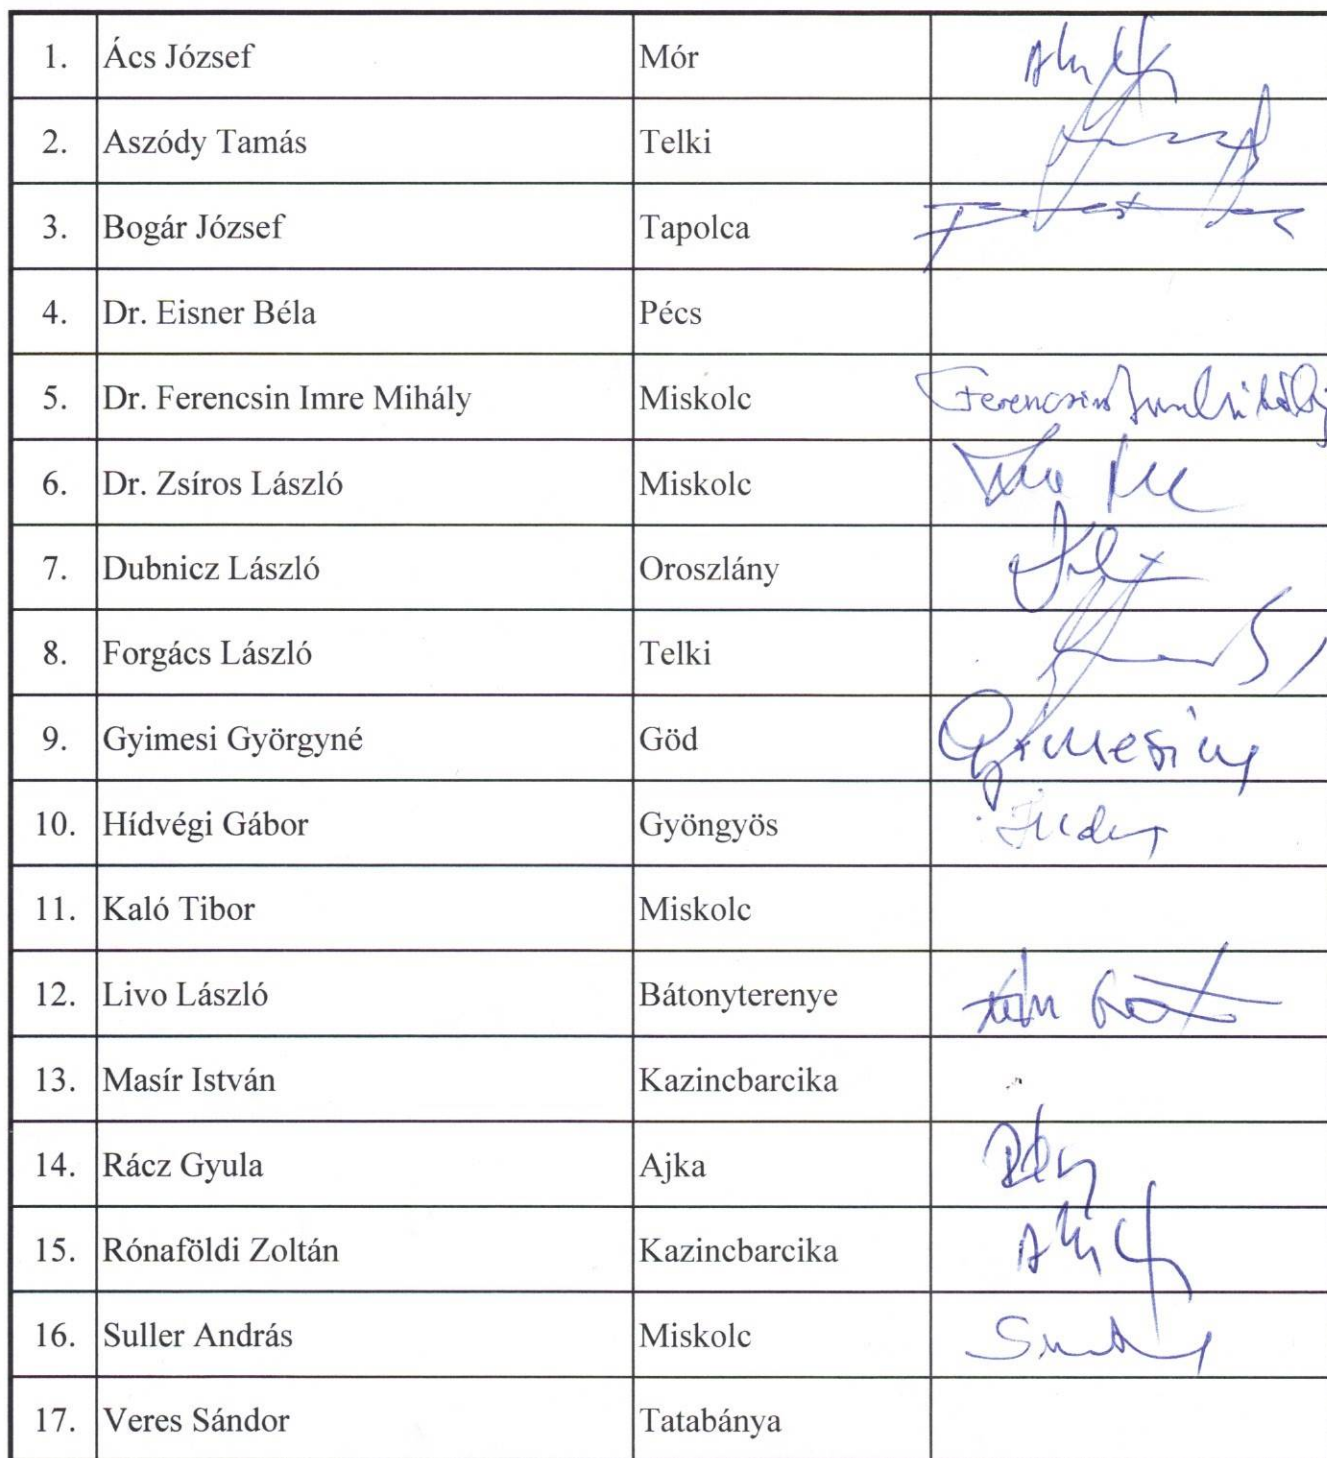 1. Ács József Mór
2. Aszódy Tamás Telki
3. Bogár József Tapolca
4. Dr. Eisner Béla Pécs
5. Dr. Ferencsin Imre Mihály Miskolc Ferencsin Imre Mihály
6. Dr. Zsíros László Miskolc
7. Dubnicz László Oroszlány
8. Forgács László Telki
9. Gyimesi Györgyné Göd Gyimesiné
10. Hídvégi Gábor Gyöngyös
11. Kaló Tibor Miskolc
12. Livo László Bátonyterenye
13. Masír István Kazincbarcika
14. Rácz Gyula Ajka
15. Rónaföldi Zoltán Kazincbarcika
16. Suller András Miskolc
17. Veres Sándor Tatabánya